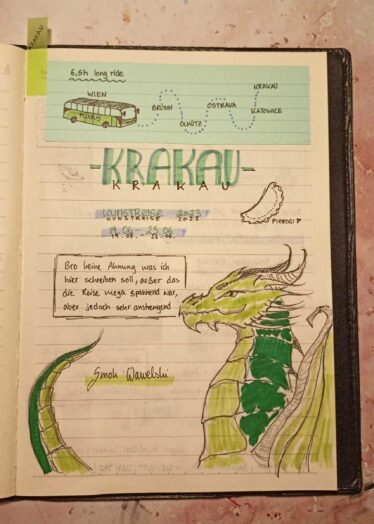 KRAKAU
6,5h long ride
WIEN
BRÜNN
OLMÜTZ
OSTRAVA
KRAKAU
KATOWICE
-KRAKAU-
KRAKAU
KUNSTREISE 2023
KUNSTREISE 2023
19.06. - 25.06.
19.06. - 25.06.
PIEROGI
Bro keine Ahnung was ich
hier schreiben soll, außer das
die Reise mega spannend war,
aber jedoch sehr anstrengend
Smok Wawelski